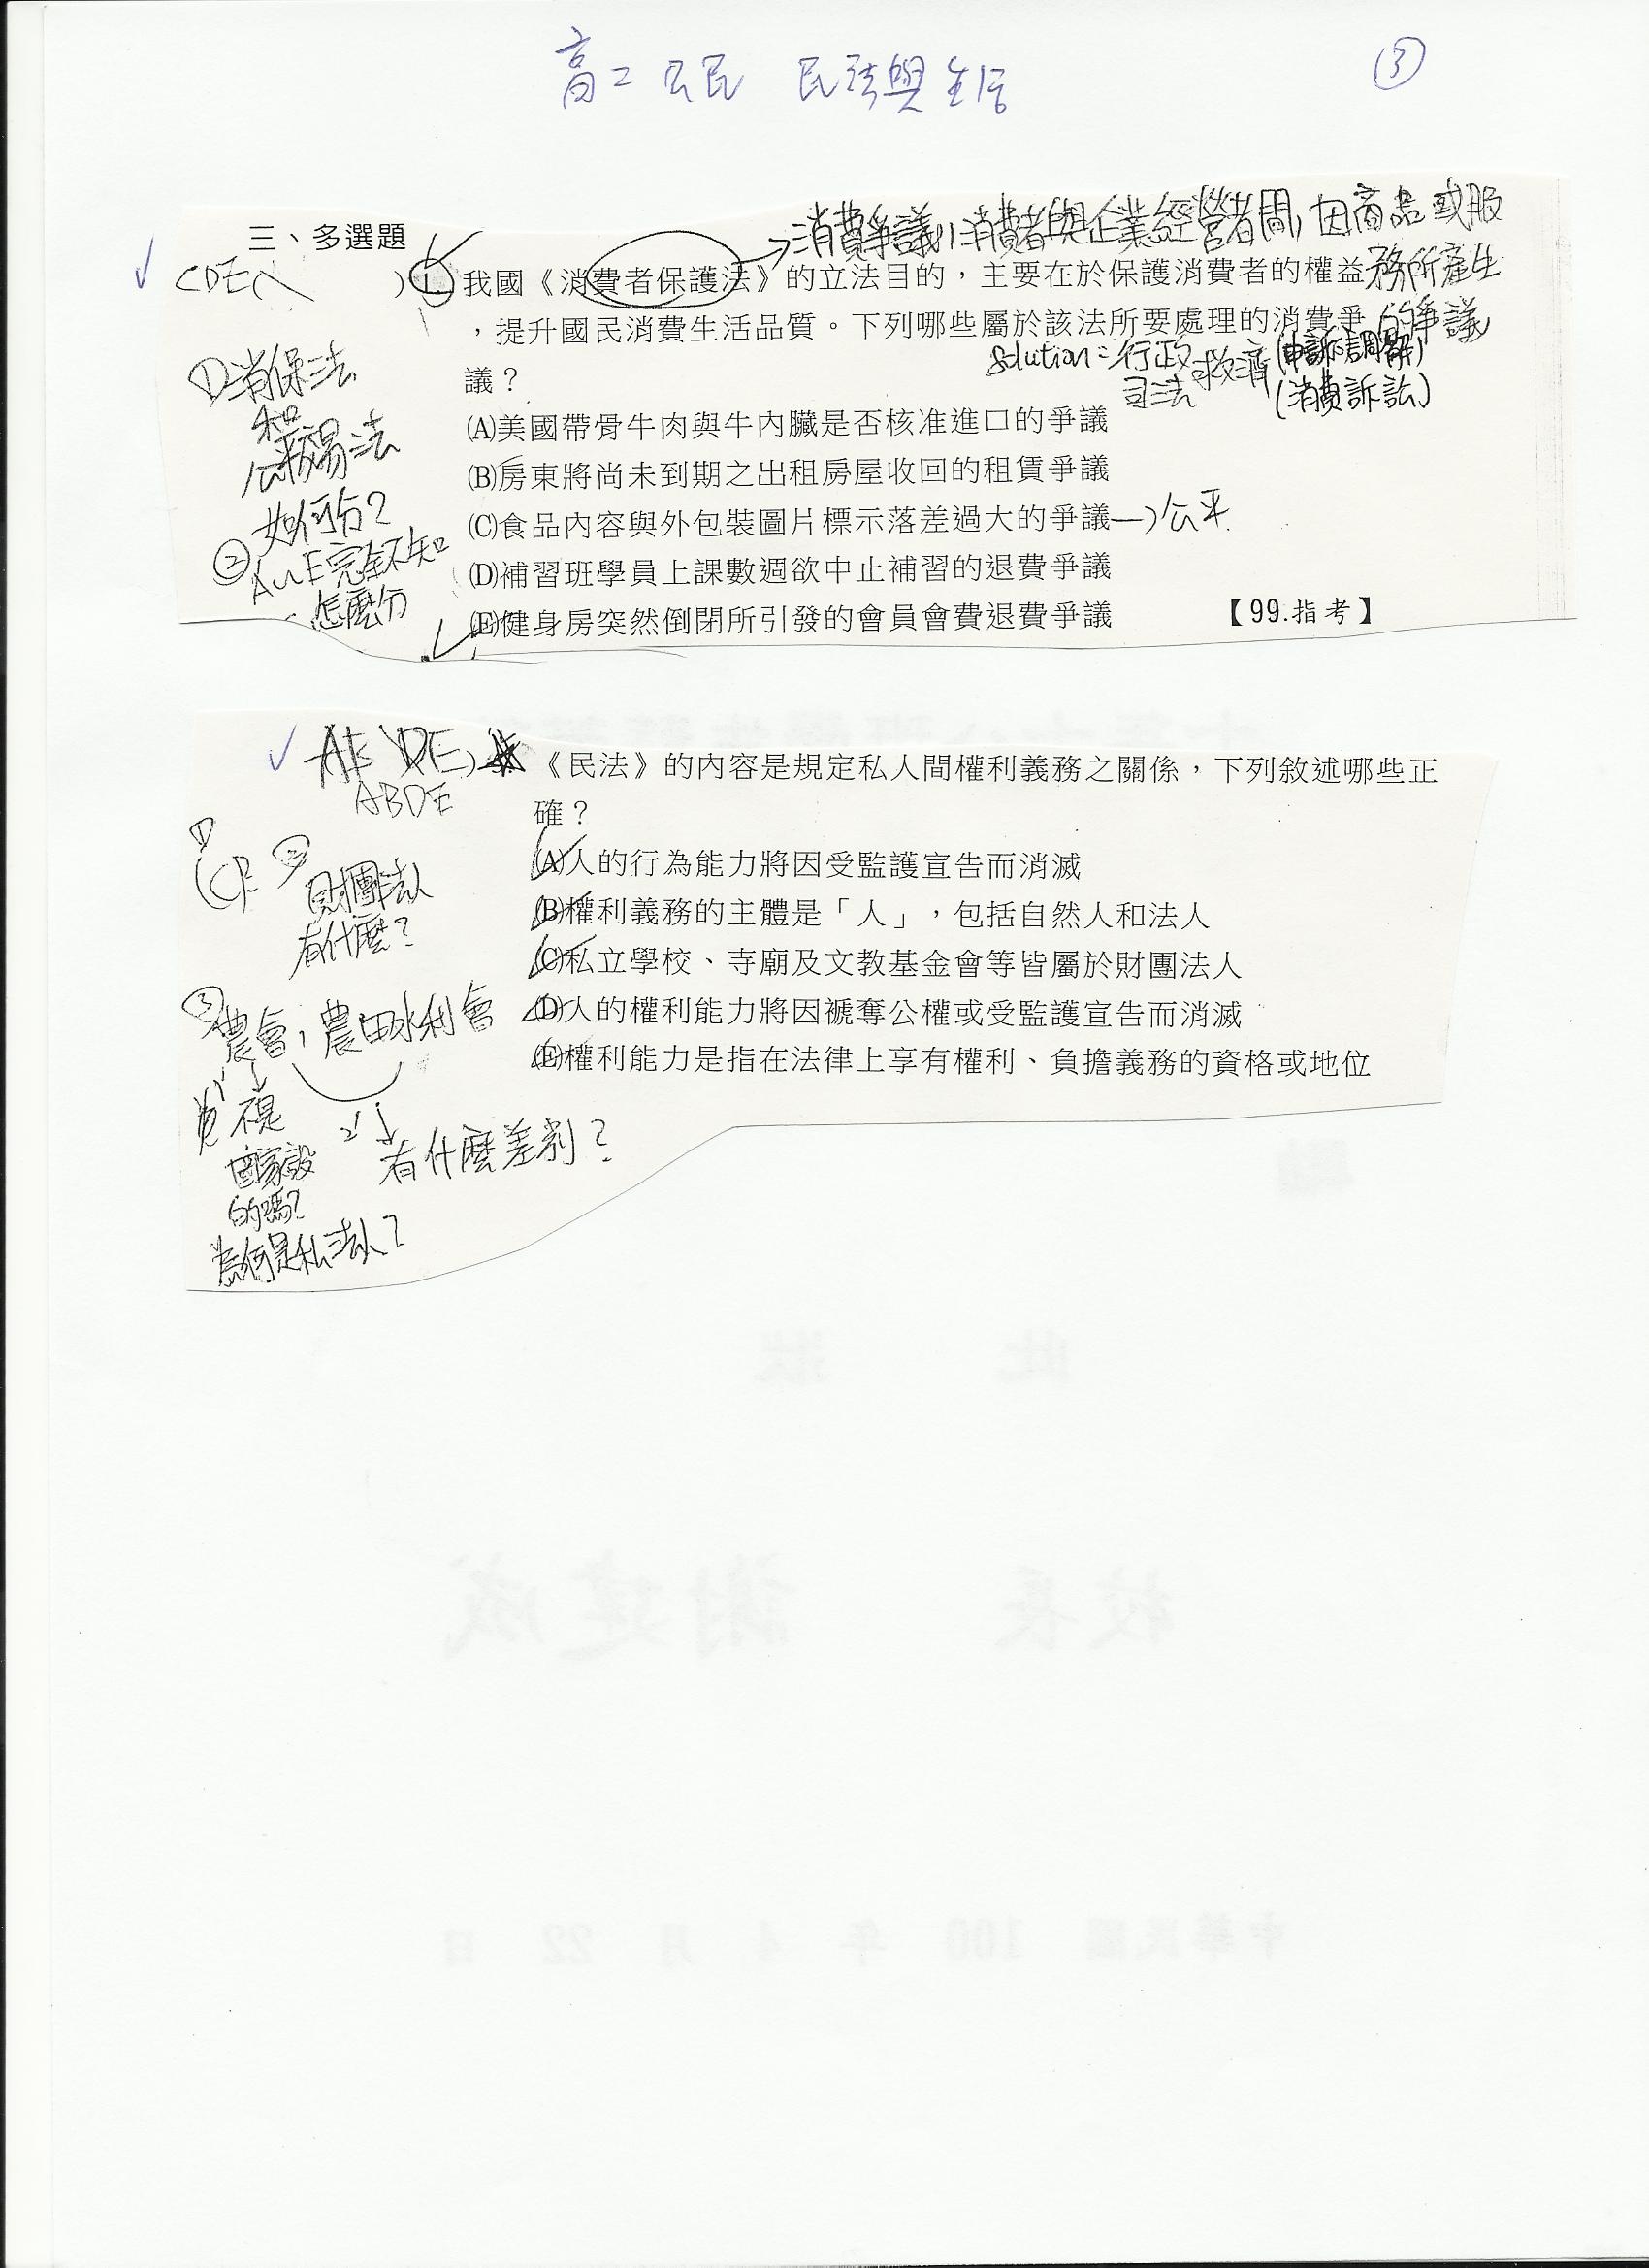 高二公民 民法與生活
③
三、多選題
→消費爭議，消費者與企業經營者間，因商品或服
務所產生
的爭議
CDE
)1.我國《消費者保護法》的立法目的，主要在於保護消費者的權益
，提升國民消費生活品質。下列哪些屬於該法所要處理的消費爭
議？
solution：行政救濟(申訴、調解)
司法 (消費訴訟)
(A)美國帶骨牛肉與牛內臟是否核准進口的爭議
(B)房東將尚未到期之出租房屋收回的租賃爭議
(C)食品內容與外包裝圖片標示落差過大的爭議→公平
(D)補習班學員上課數週欲中止補習的退費爭議
(E)健身房突然倒閉所引發的會員會費退費爭議
【99.指考】
①消保法
和
公平交易法
如何分？
②
A~E完全不知
怎麼分
ABDE
《民法》的內容是規定私人間權利義務之關係，下列敘述哪些正
確？
(A)人的行為能力將因受監護宣告而消滅
(B)權利義務的主體是「人」，包括自然人和法人
(C)私立學校、寺廟及文教基金會等皆屬於財團法人
(D)人的權利能力將因褫奪公權或受監護宣告而消滅
(E)權利能力是指在法律上享有權利、負擔義務的資格或地位
①
(C)
②
財團法人
有什麼？
③農會，農田水利會
不是
國家設
的嗎？
為何是私法人？
有什麼差別？